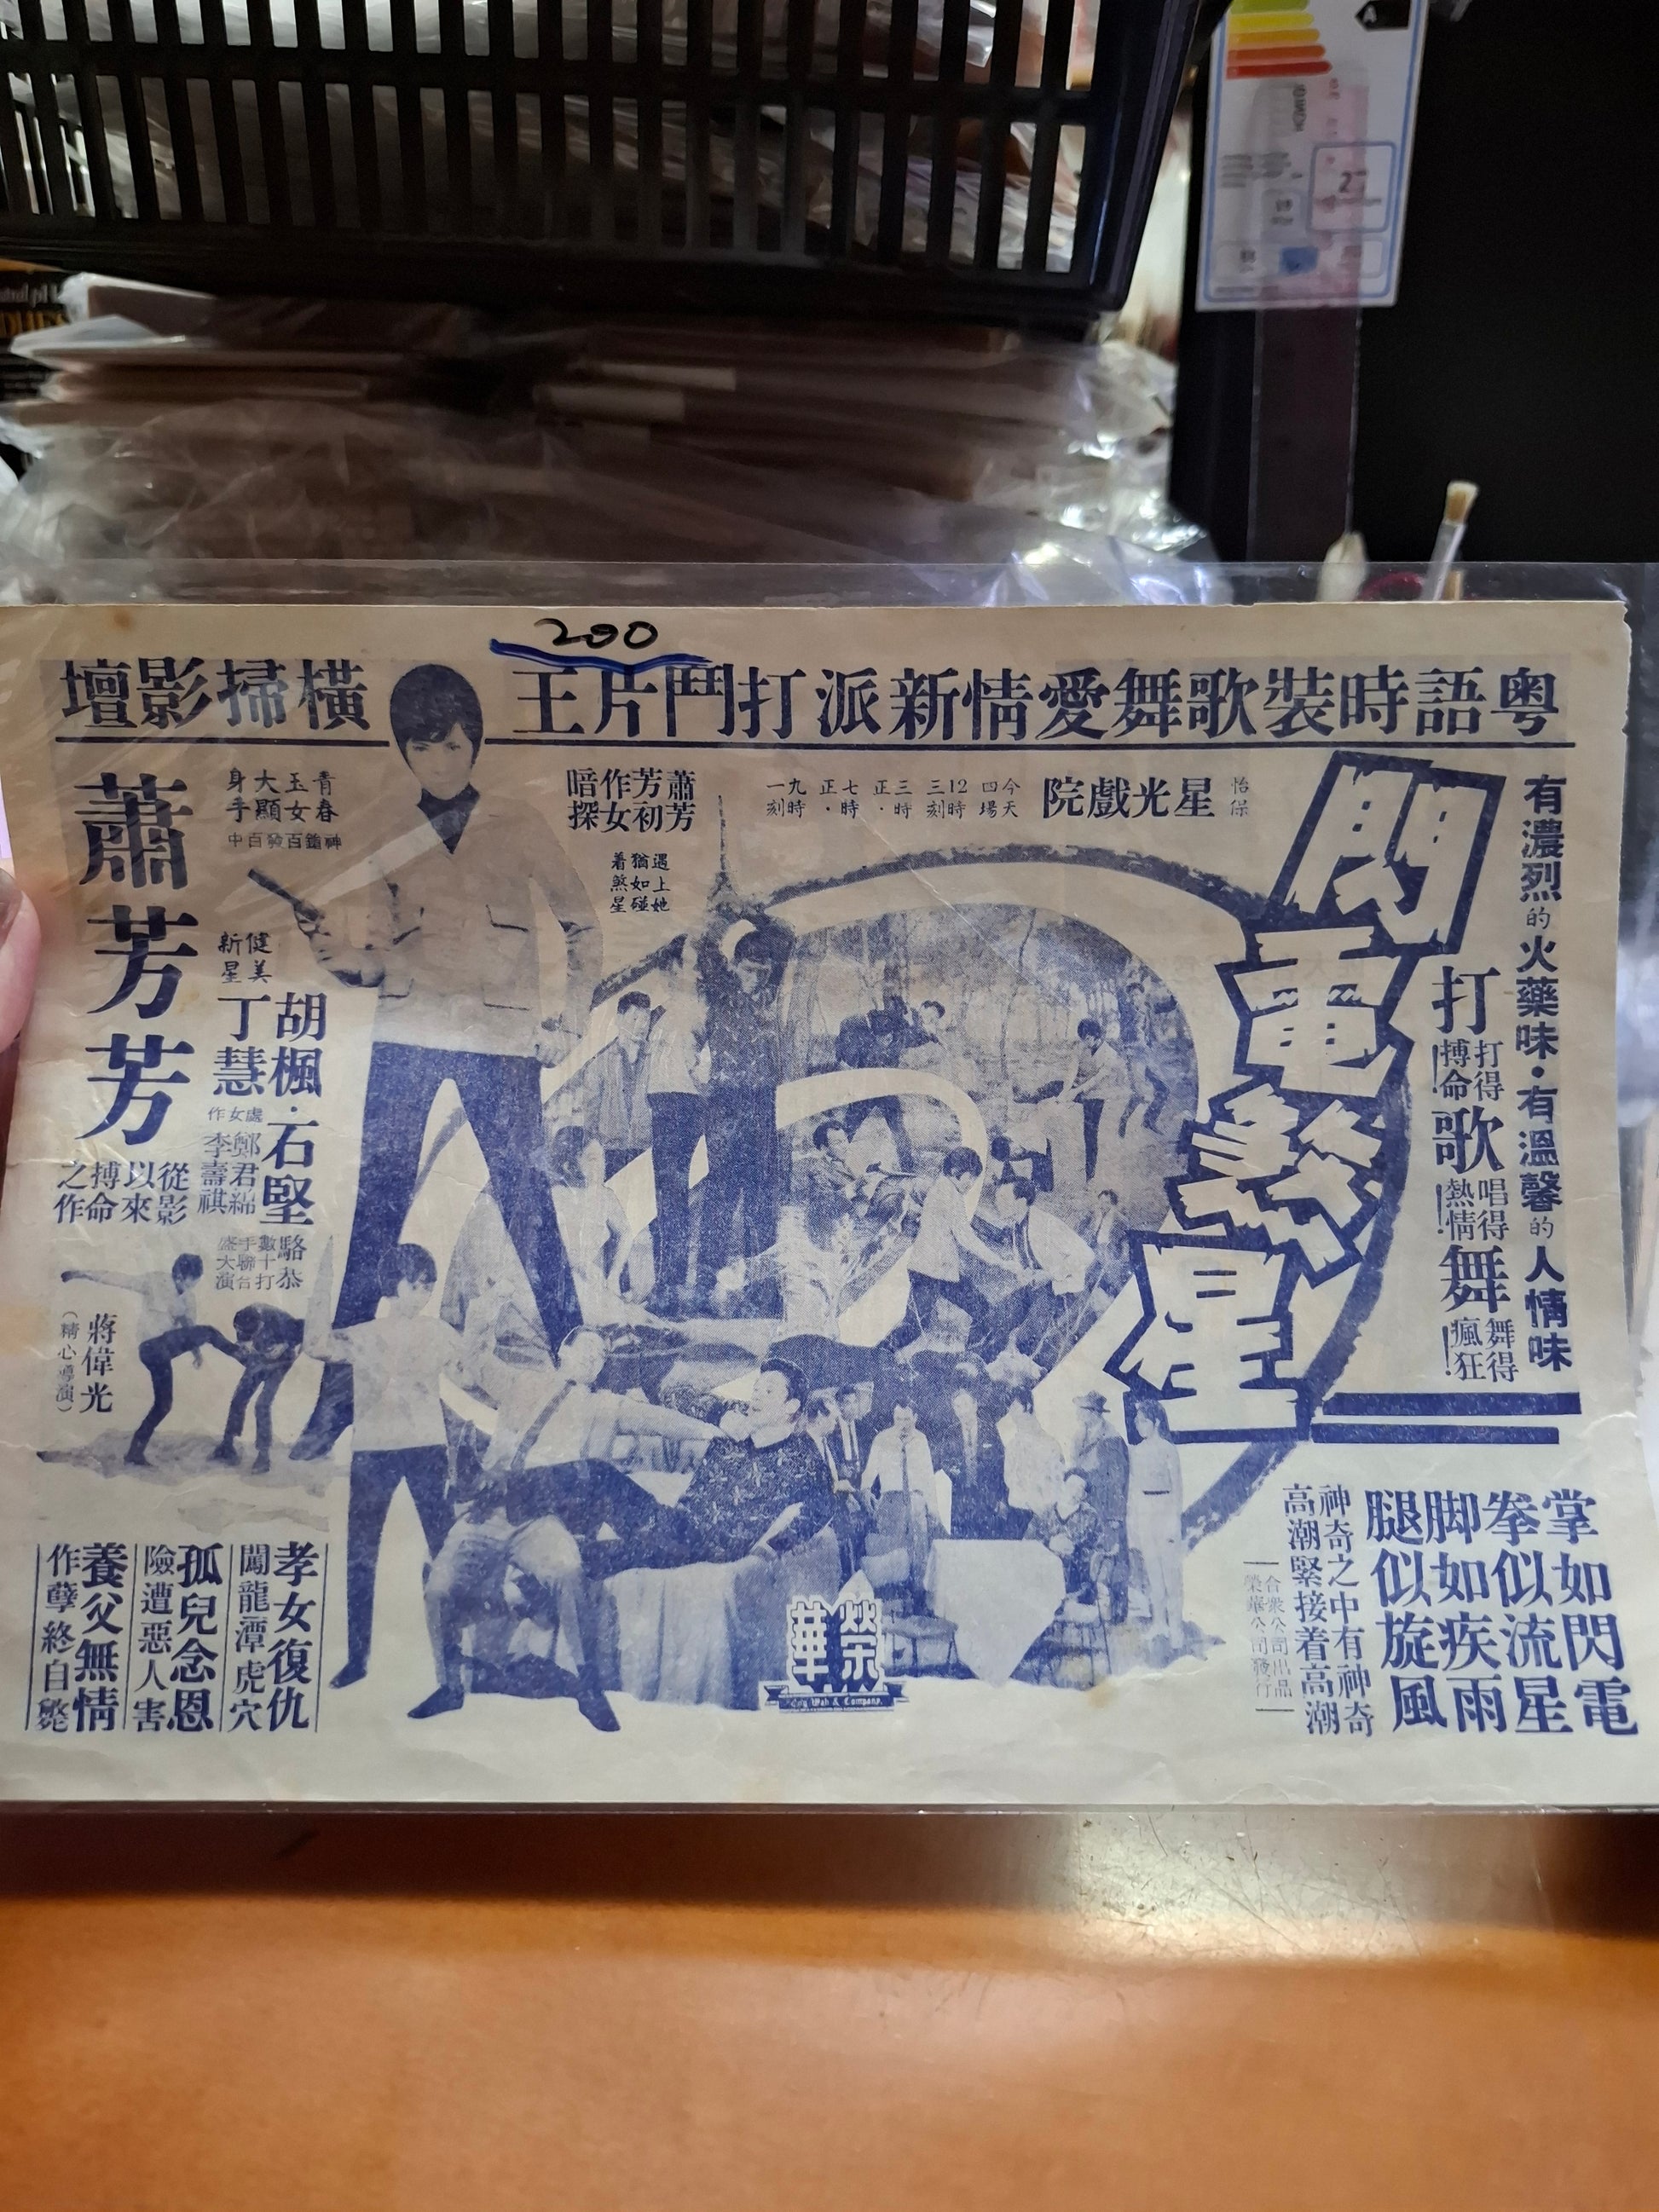 200
粤語時裝歌舞愛情新派打鬥片王
橫掃影壇
有濃烈的火藥味·有溫馨的人情味
閃電煞星
打
打得
搏命!
歌
唱得
熱情!
舞
舞得
瘋狂!
怡保
星光戲院
今天
四場
12時
三刻
三時
正·
七時
正·
九時
一刻
蕭芳芳初
作女暗探
遇上她
猶如碰
着煞星
青春
玉女
大顯
身手
神鎗百發百中
蕭芳芳
從影
以來
搏命
之作
健美
新星
胡楓·石堅
丁慧
處女作
鄭君綿
李壽祺
駱恭
數十打
手聯台
盛大演
蔣偉光
(精心導演)
掌如閃電
拳似流星
脚如疾雨
腿似旋風
神奇之中有神奇
高潮緊接着高潮
合衆公司出品
榮華公司發行
孝女復仇
闖龍潭虎穴
孤兒念恩
險遭惡人害
養父無情
作孽終自斃
榮華
Wah & Company.
A